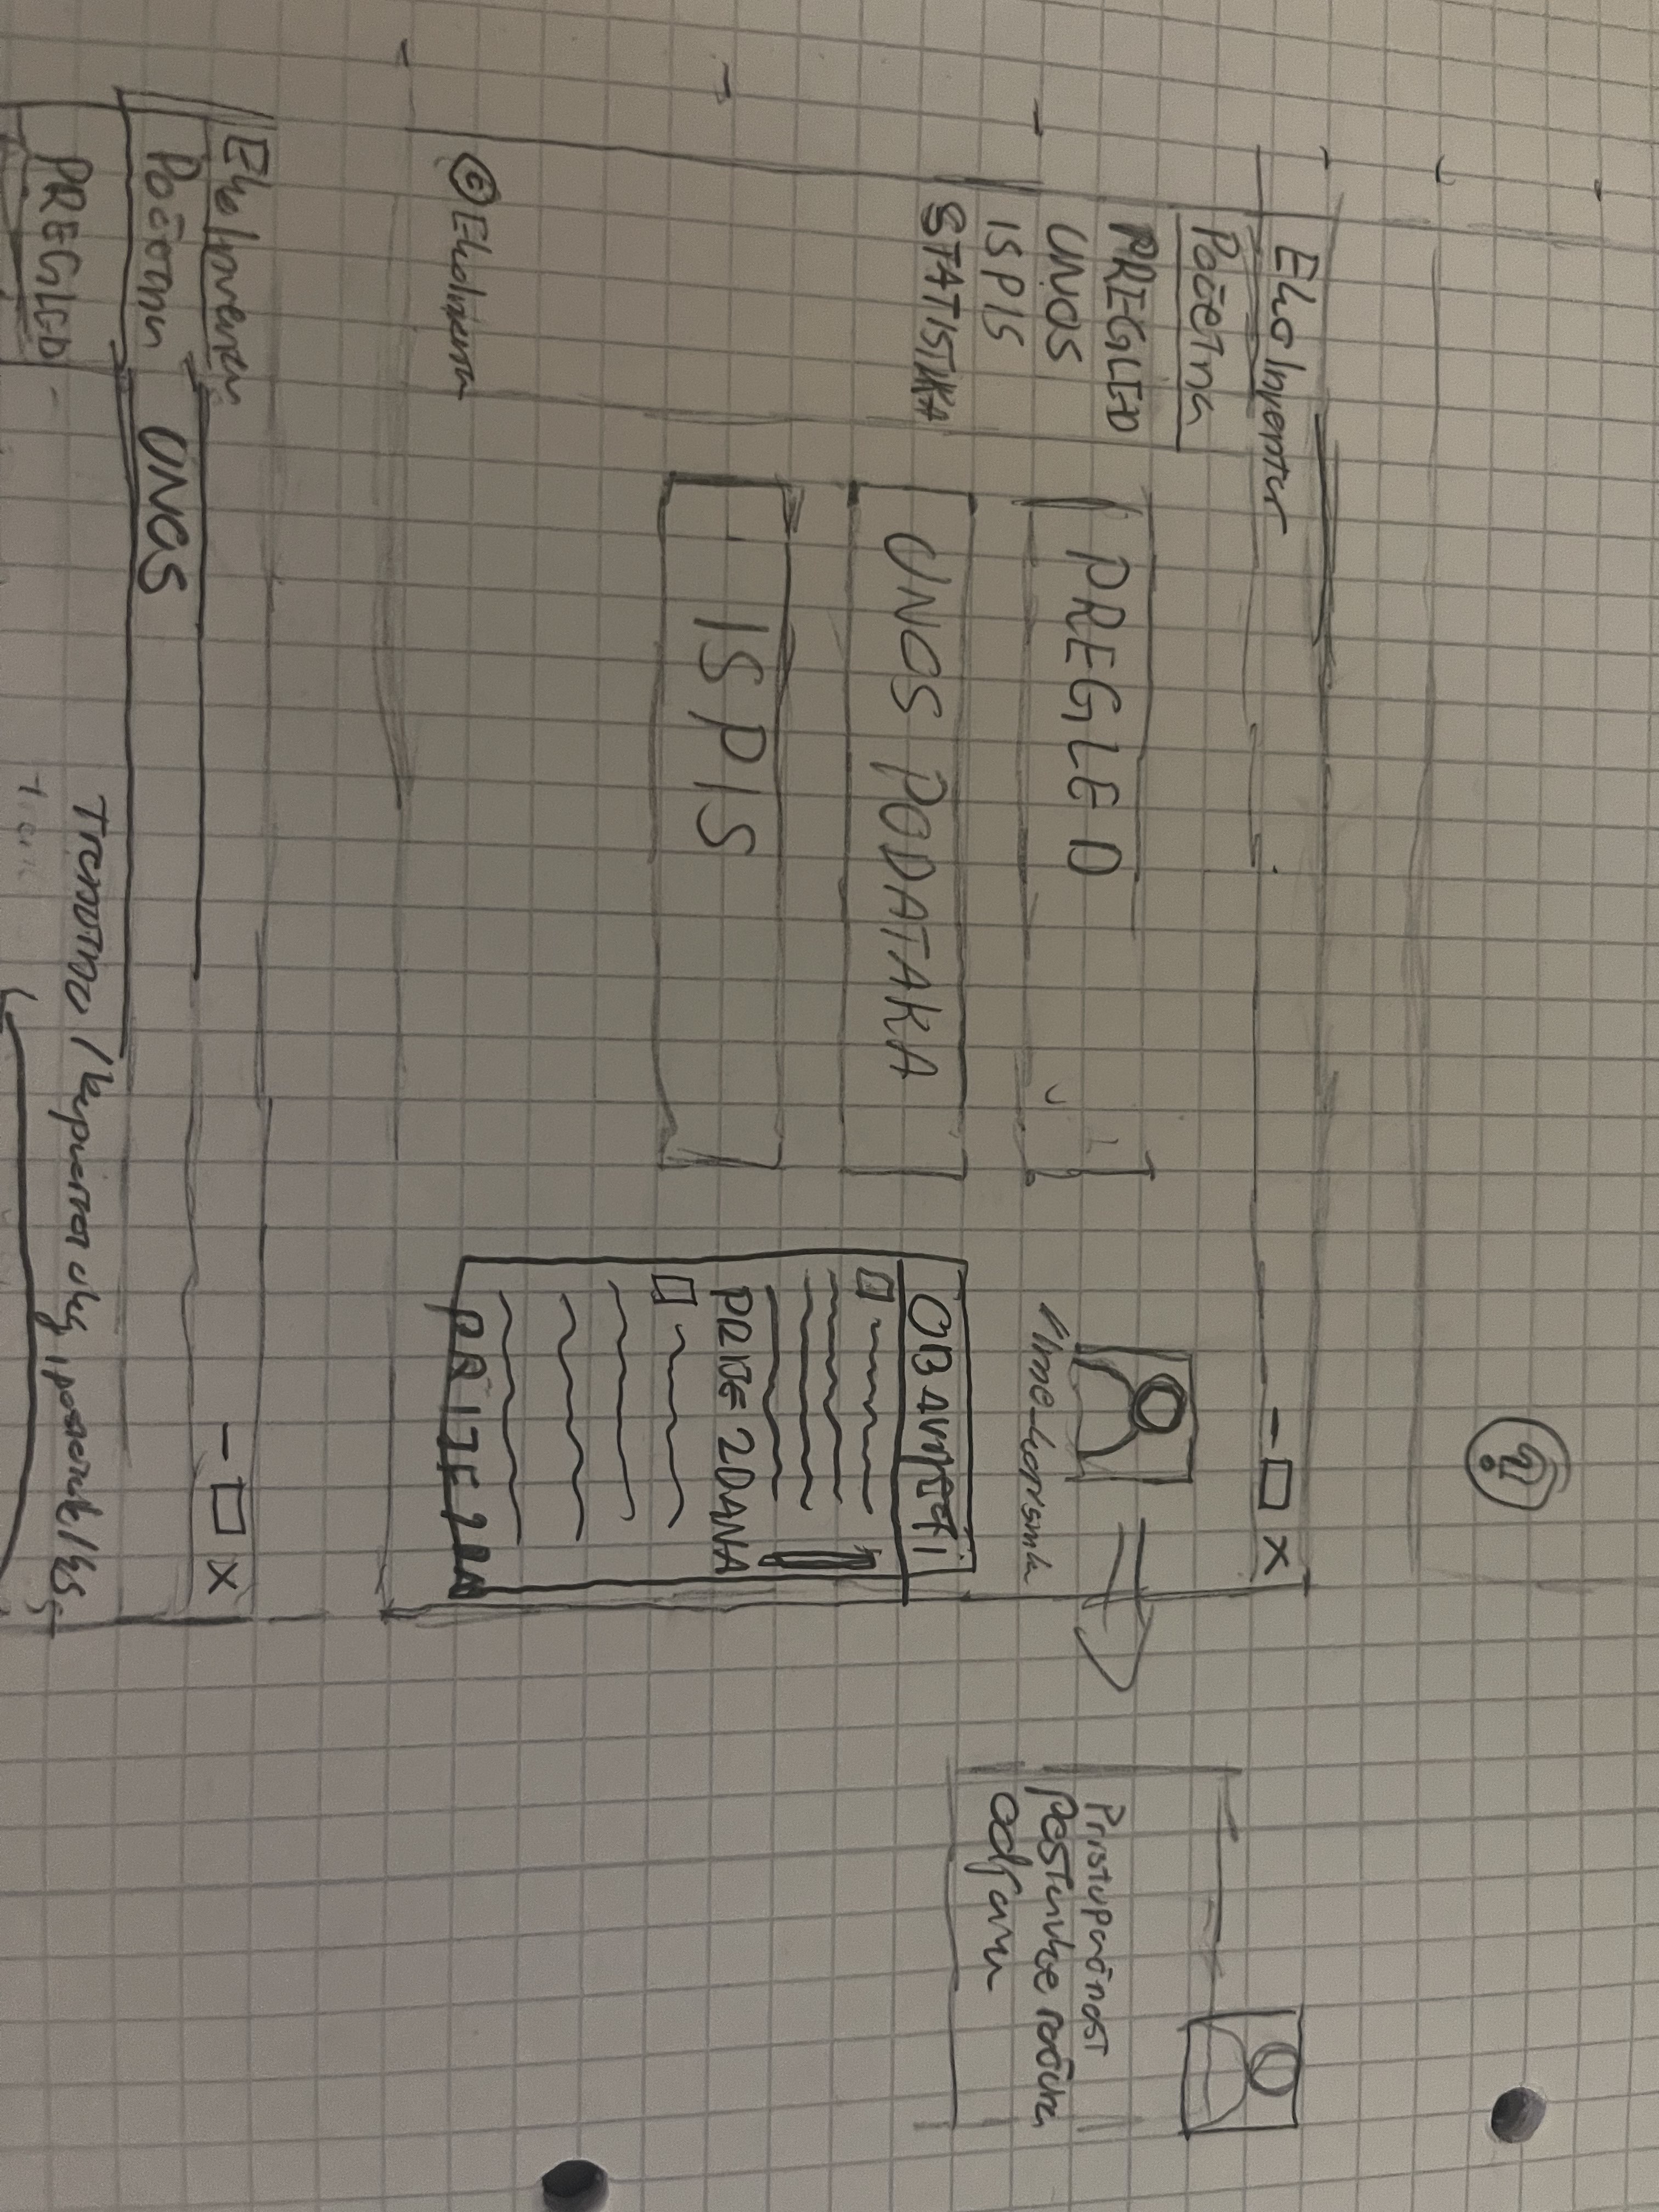 ?
EkoInventar
Početna
PREGLED
UNOS
ISPIS
STATISTIKA
PREGLED
UNOS PODATAKA
ISPIS
Ime_korisnika
OBAVIJESTI
PRIJE 2 DANA
PRIJE 2 DAN
Pristupačnost
Postavke računa
odjava
© EkoInventar
EkoInventar
Početna
UNOS
PREGLED
Trenutno /